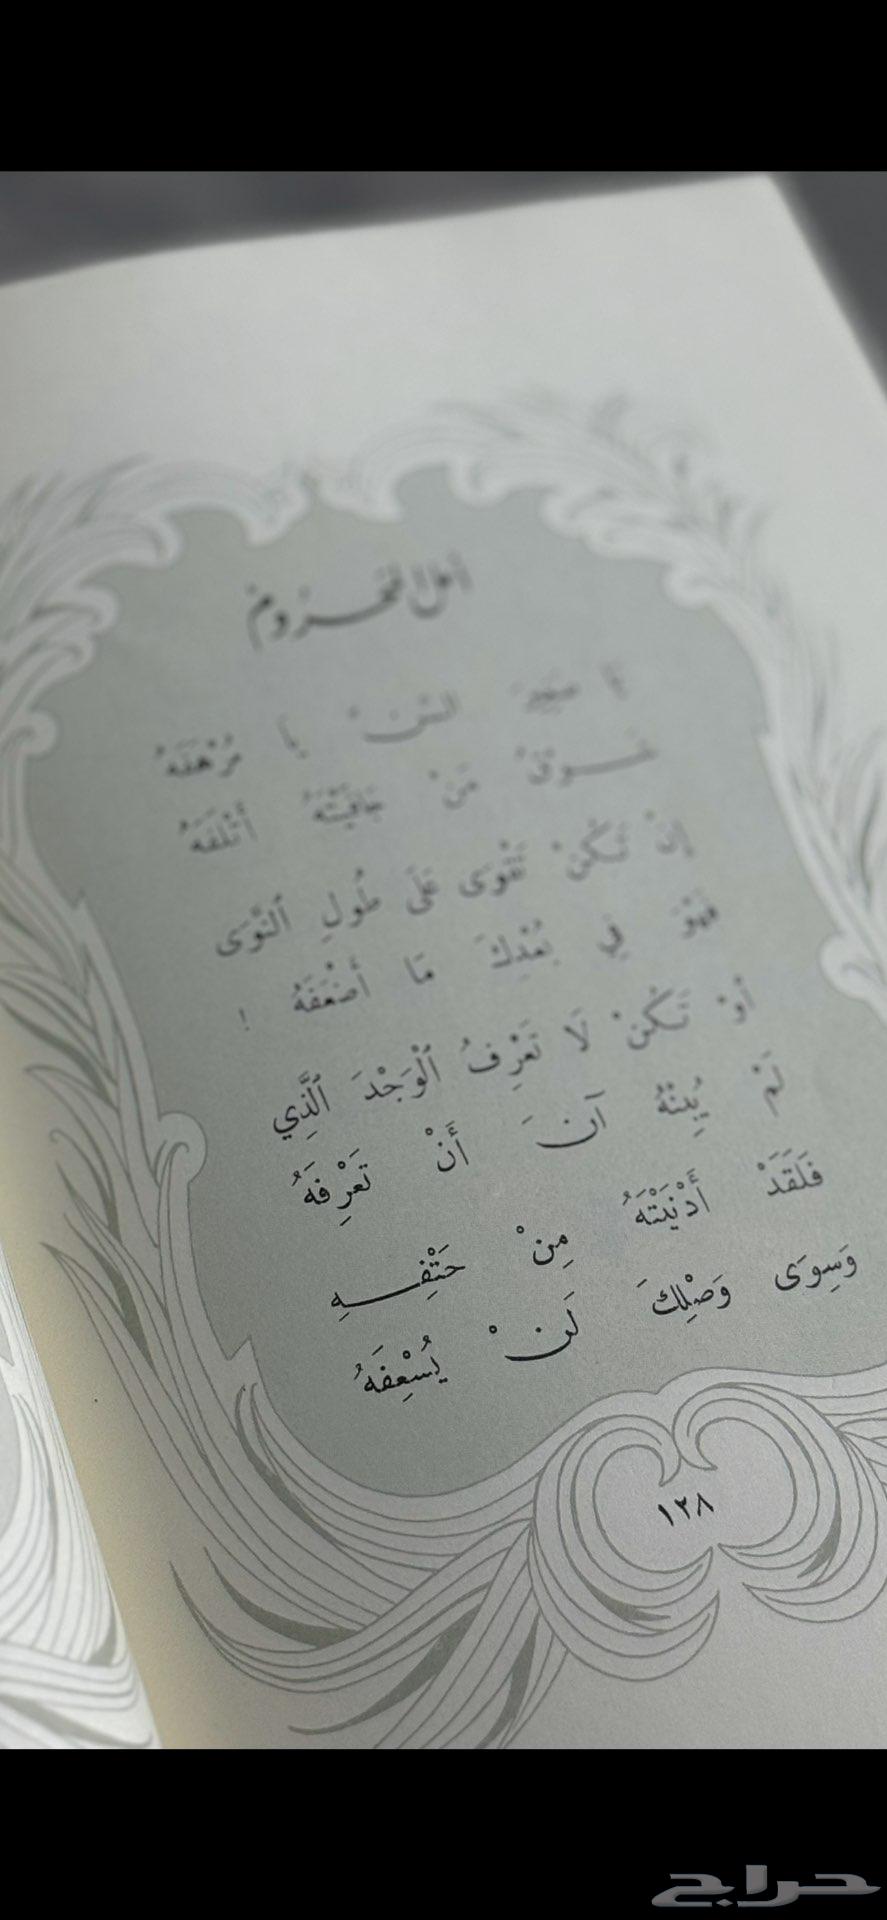 أمل المحروم
يا صغير السن يا مرهفه
شوق من جافيته أتلفه
إِنْ تَكُنْ تَقْوَى عَلَى طُولِ ٱلنَّوَى
فَهْوَ فِي بُعْدِكَ مَا أَضْعَفَهُ !
أَوْ تَكُنْ لَا تَعْرِفُ ٱلْوَجْدَ ٱلَّذِي
لَمْ يُبِنْهُ آنَ أَنْ تَعْرِفَهُ
فَلَقَدْ أَدْنَيْتَهُ مِنْ حَتْفِهِ
وَسِوَى وَصْلِكَ لَنْ يُسْعِفَهُ
١٢٨
حراج